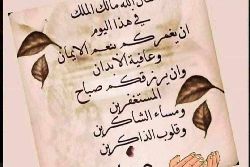 الله مالك الملك
في هذا اليوم
ان يغمركم بنعم الايمان
وعافية الابدان
وان يرزقكم صباح
المستغفرين
ومساء الشاكرين
وقلوب الذاكرين